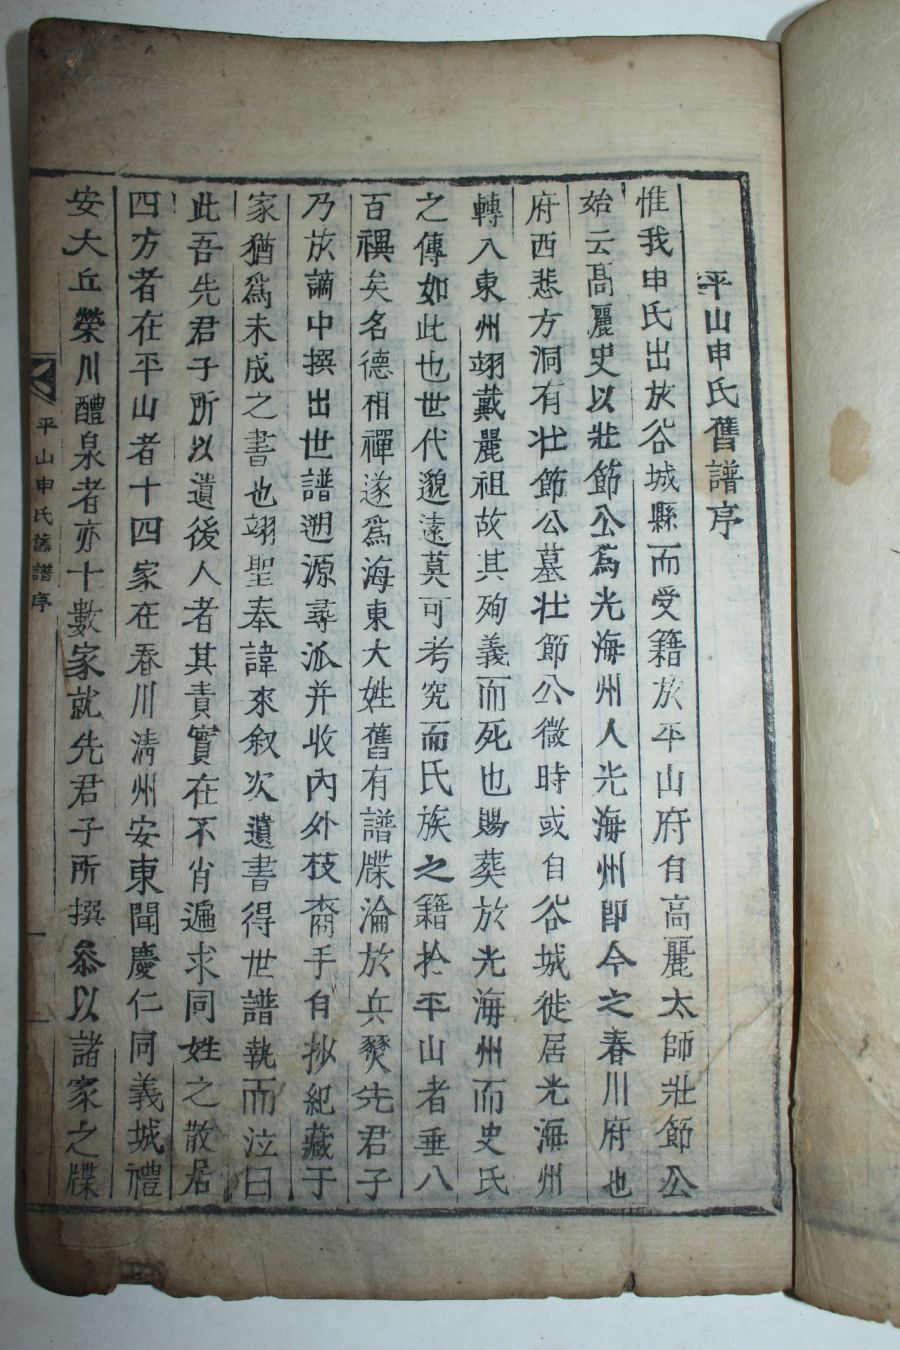 平山申氏舊譜序
惟我申氏出於谷城縣而受籍於平山府有高麗太師壯節公
始云高麗史以壯節公為光海州人光海州即今之春川府也
府西悲方洞有壯節公墓壯節公微時或自谷城徙居光海州
轉入東州翊戴麗祖故其殉義而死也賜葬於光海州而史氏
之傳如此也世代邈遠莫可考究而氏族之籍於平山者垂八
百禩矣名德相禪遂為海東大姓舊有譜牒淪於兵燹先君子
乃於謫中撰出世譜遡源尋派并收內外枝裔手自抄紀藏于
家猶為未成之書也翊聖奉諱來叙次遺書得世譜執而泣曰
此吾先君子所以遺後人者其責實在不肖遍求同姓之散居
四方者在平山者十四家在春川清州安東聞慶仁同義城禮
安大丘榮川醴泉者亦十數家就先君子所撰叅以諸家之牒
平山申氏舊譜序
一